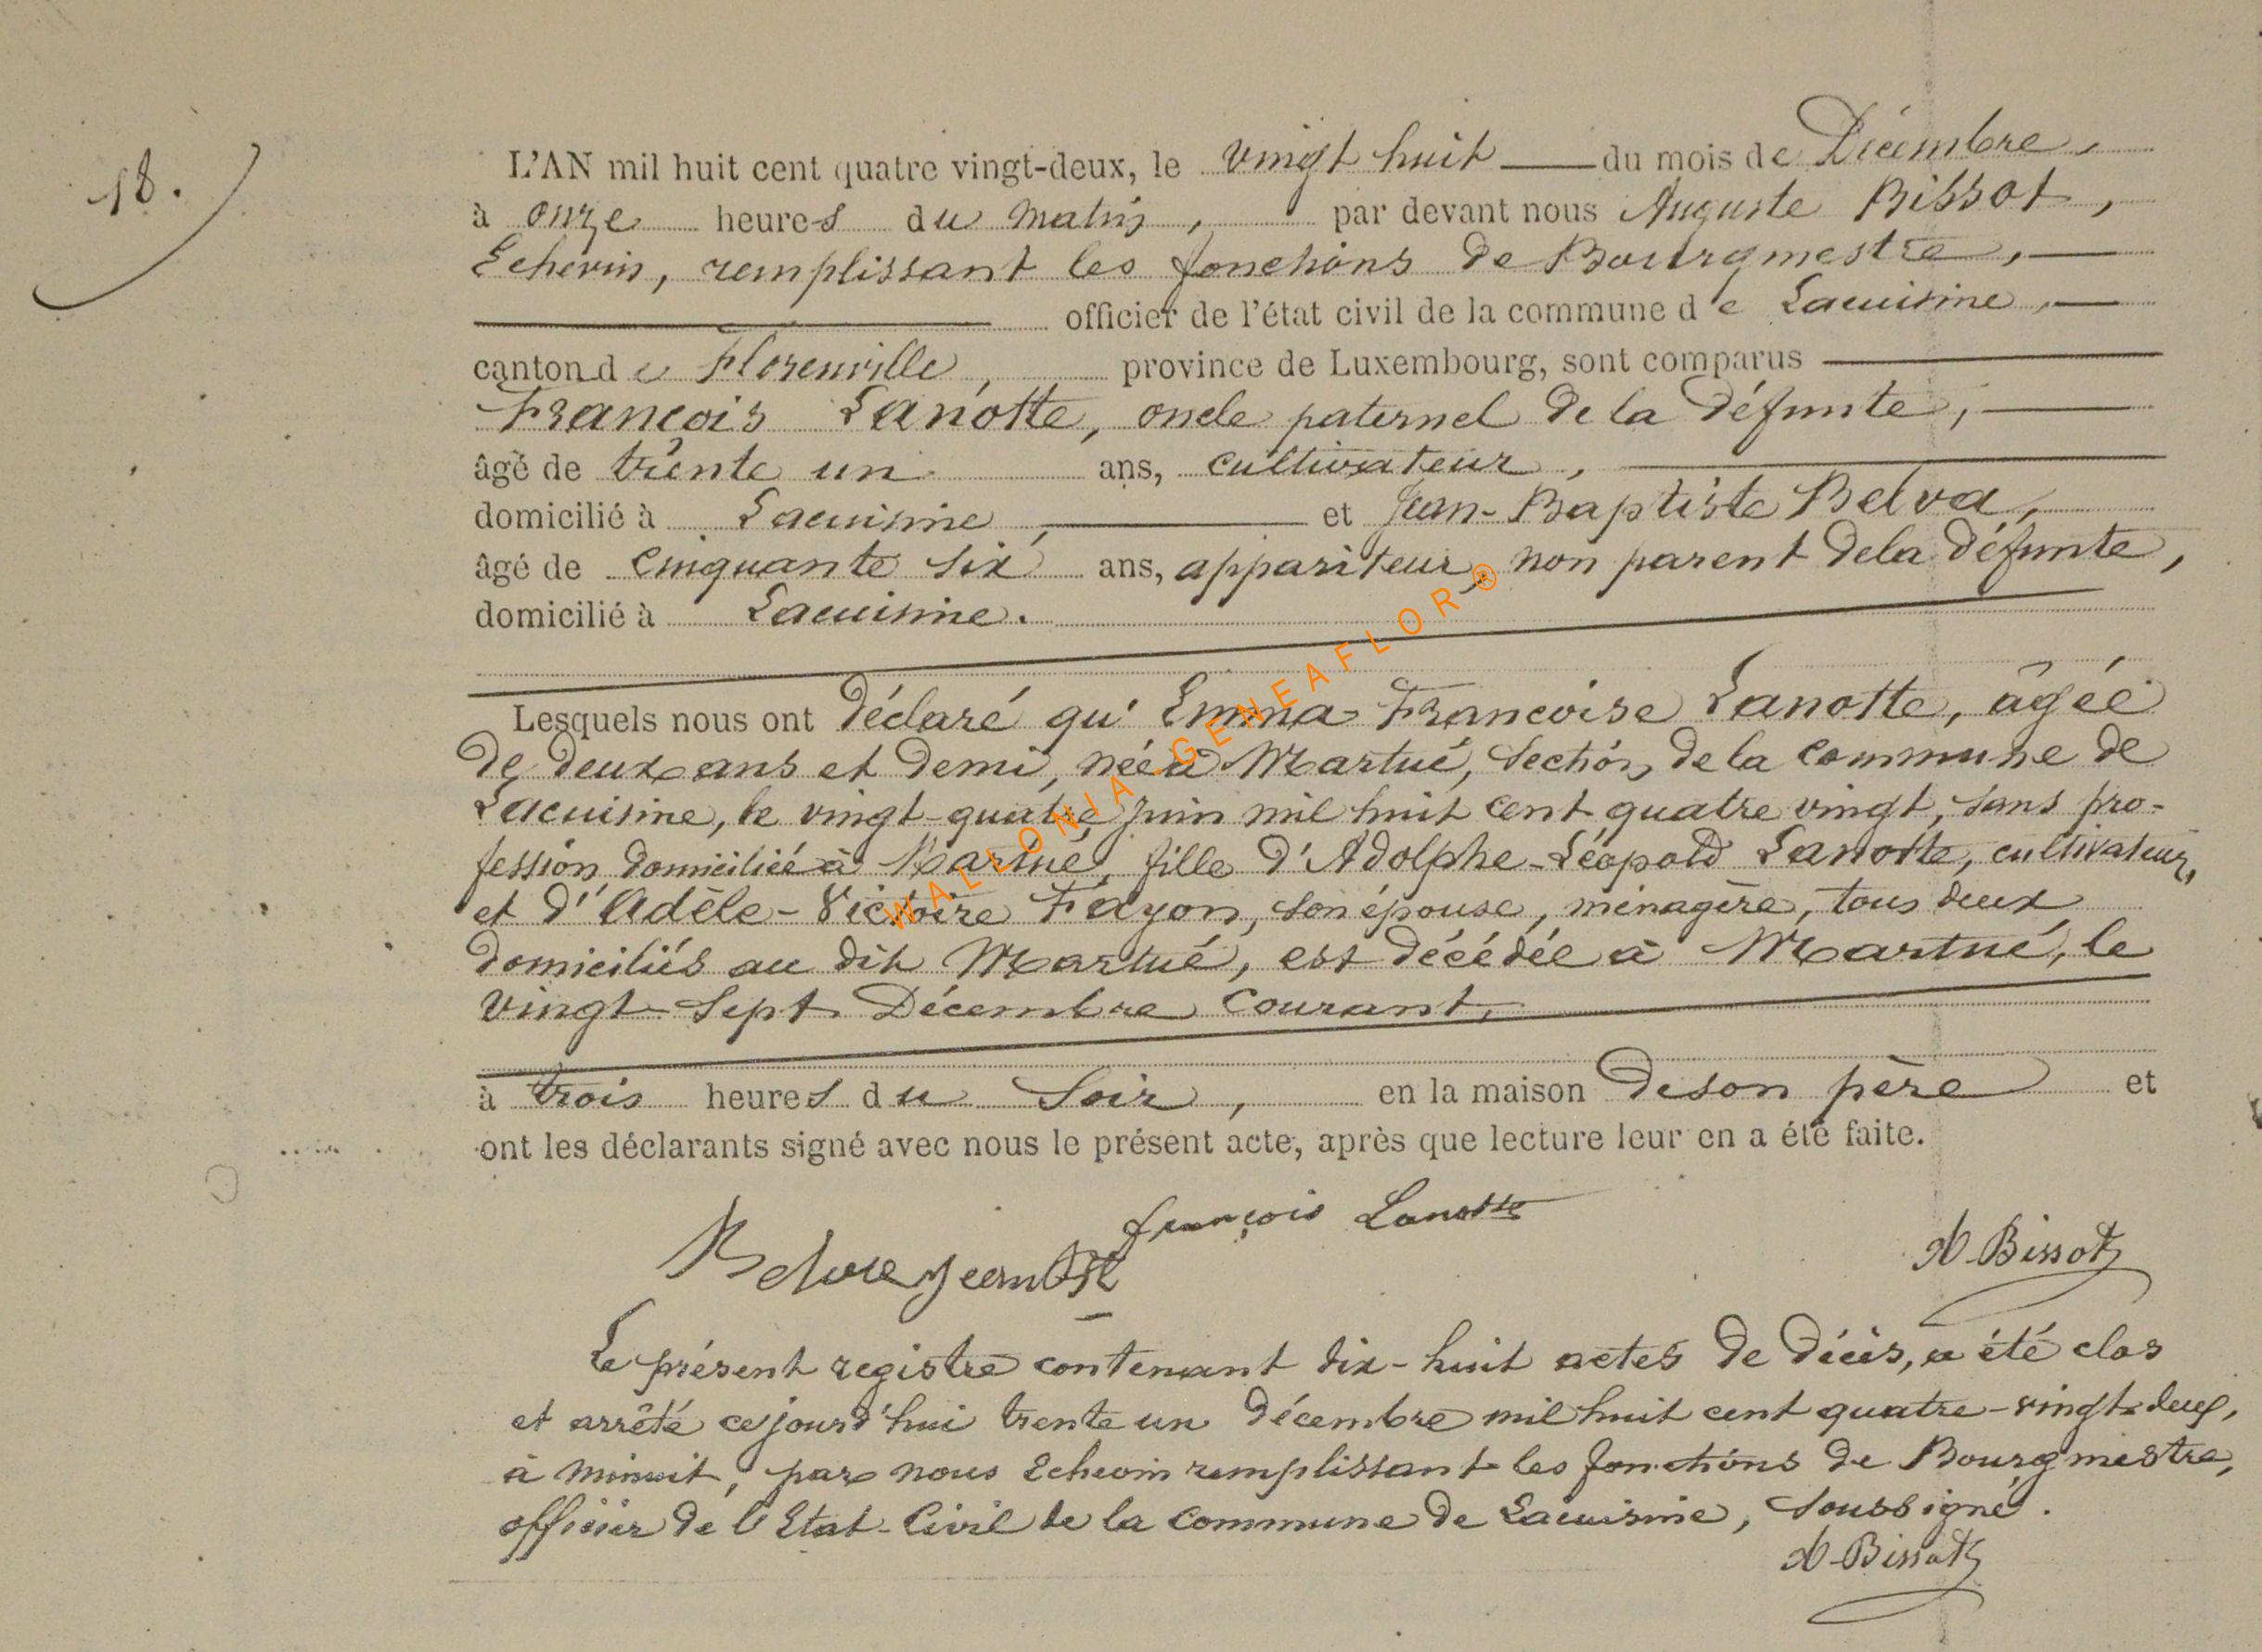 18.
L'AN mil huit cent quatre vingt-deux, le vingt huit du mois de Décembre,
à onze heures du matin, par devant nous Auguste Bissot,
Echevin, remplissant les fonctions de Bourgmestre,
officier de l'état civil de la commune de Lacuisine,
canton de Florenville, province de Luxembourg, sont comparus
François Lanotte, oncle paternel de la défunte,
âgé de trente un ans, cultivateur,
domicilié à Lacuisine, et Jean-Baptiste Belva,
âgé de cinquante six ans, appariteur, non parent de la défunte,
domicilié à Lacuisine.
Lesquels nous ont déclaré qu'Emma Françoise Lanotte, âgée
de deux ans et demi, née à Martué, section de la commune de
Lacuisine, le vingt-quatre juin mil huit cent quatre vingt, sans pro-
fession, domiciliée à Martué, fille d'Adolphe-Léopold Lanotte, cultivateur,
et d'Adèle-Victoire Fayon, son épouse, ménagère, tous deux
domiciliés au dit Martué, est décédée à Martué, le
vingt-sept Décembre courant,
à trois heures du soir, en la maison de son père et
ont les déclarants signé avec nous le présent acte, après que lecture leur en a été faite.
françois Lanotte
Belva jean bste
A. Bissot
Le présent registre contenant dix-huit actes de décès, a été clos
et arrêté ce jourd'hui trente un décembre mil huit cent quatre-vingt-deux,
à minuit, par nous Echevin remplissant les fonctions de Bourgmestre,
officier de l'Etat-Civil de la commune de Lacuisine, soussigné.
A. Bissot
WALLONIA GENEAFLOR®